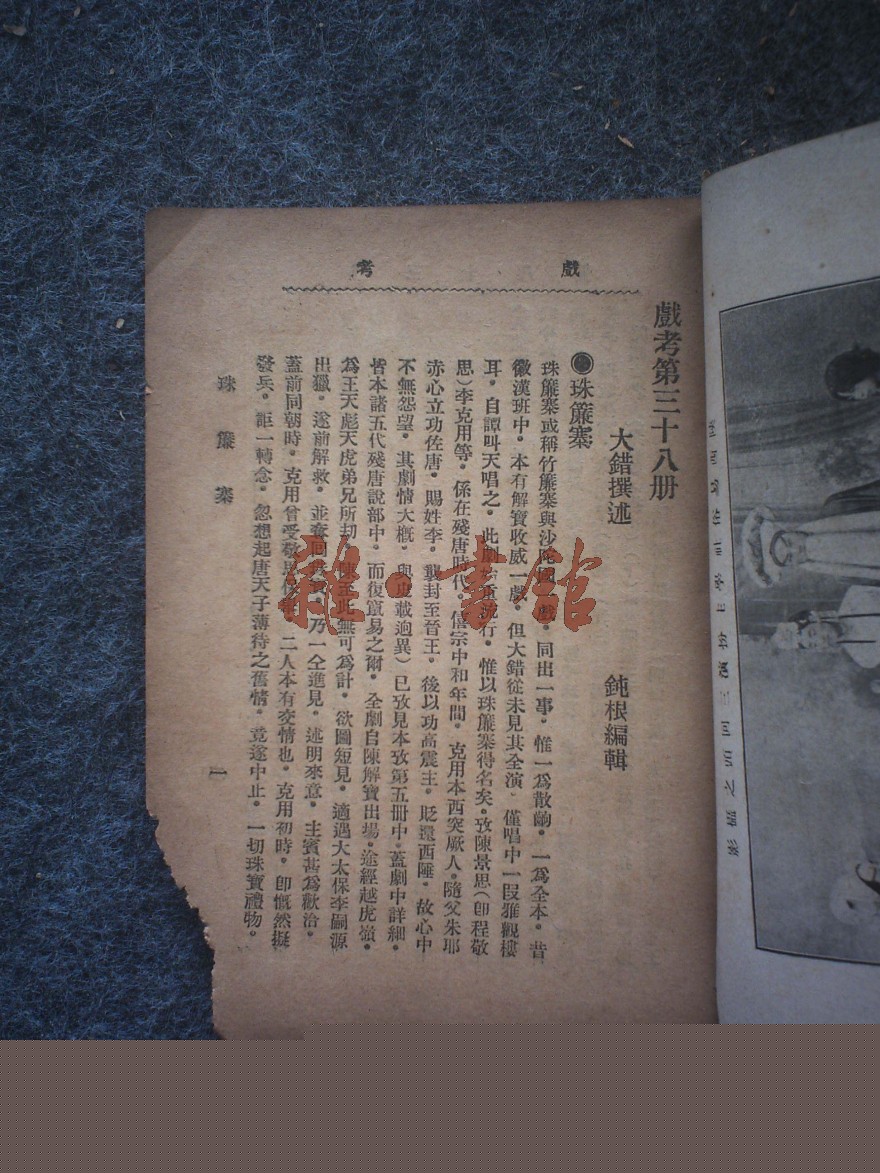 戲考
戲考第三十八册
大錯撰述
鈍根編輯
●珠簾寨
珠簾寨或稱竹簾寨與沙陀國 戲。同出一事。惟一爲散齣。一爲全本。昔
徽漢班中。本有解寶收威一戲。但大錯從未見其全演。僅唱中一段雅觀樓
耳。自譚叫天唱之。此劇 重 行。惟以珠簾寨得名矣。攷陳景思(卽程敬
思)李克用等。係在殘唐時代。僖宗中和年間。克用本西突厥人。隨父朱耶
赤心立功佐唐。賜姓李。襲封至晉王。後以功高震主。貶還西陲。故心中
不無怨望。其劇情大槪。與史載逈異)已攷見本攷第五冊中。蓋劇中詳細。
皆本諸五代殘唐說部中。而復竄易之爾。全劇自陳解寶出場。途經越虎嶺。
爲王天彪天虎弟兄所刧。陳至此無可爲計。欲圖短見。適遇大太保李嗣源
出獵。遂前解救。並奪回 。乃一仝進見。述明來意。主賓甚爲歡洽。
蓋前同朝時。克用曾受敬思 。二人本有交情也。克用初時。卽慨然擬
發兵。詎一轉念。忽想起唐天子薄待之舊情。竟遂中止。一切珠寶禮物。
珠簾寨
一
雜·書館
之攝影